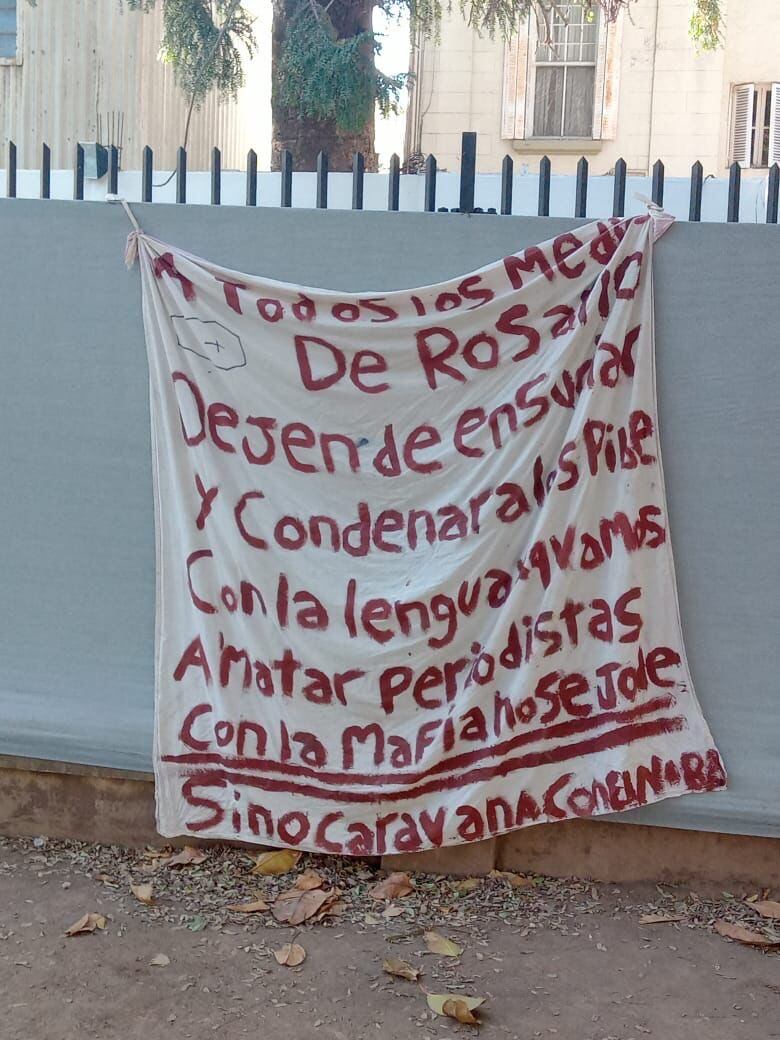 A Todos los Medi
De Rosario
Dejen de ensuciar
Y Condenar a los Pibe
Con la lengua qvamos
A Matar Periodistas
Con la Mafia no Se Jode
Sino Caravana Con